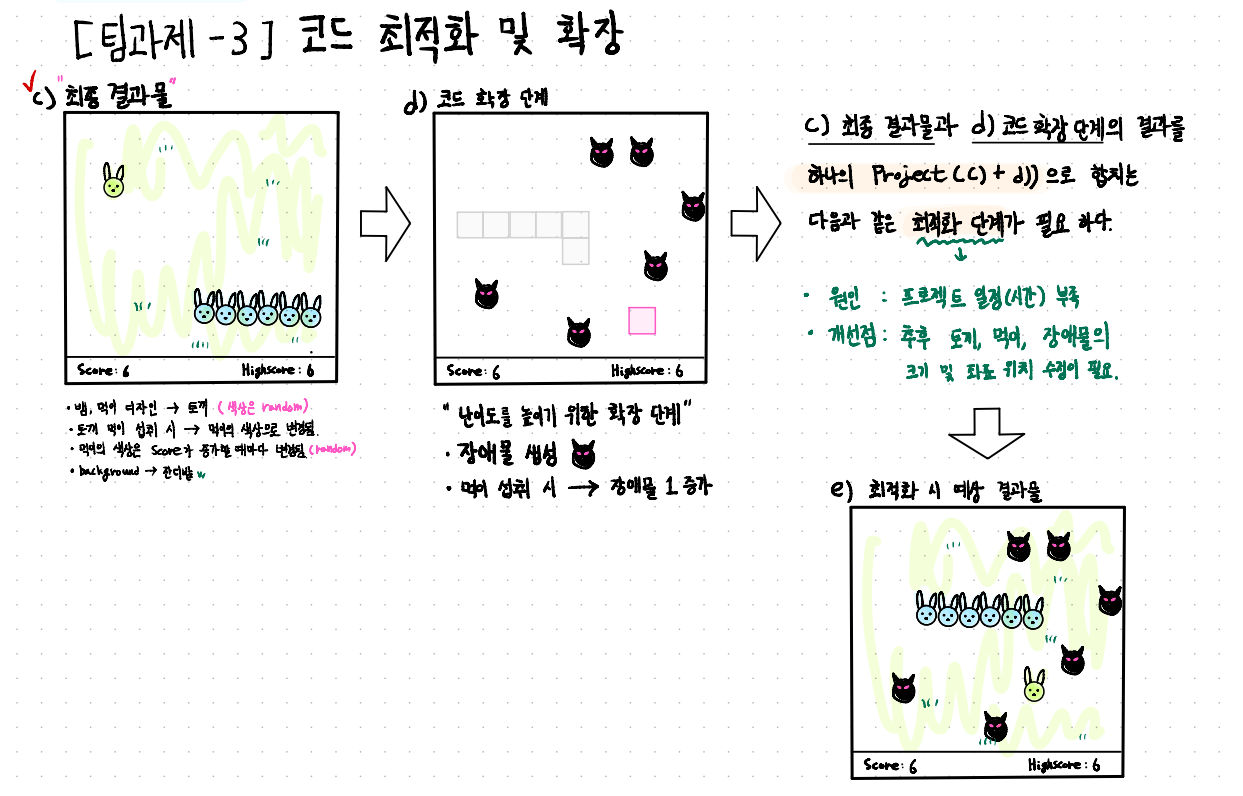 [팀과제 - 3] 코드 최적화 및 확장
✓ c) "최종 결과물"
Score: 6 Highscore : 6
• 뱀, 먹이 디자인 → 토끼 (색상은 random)
• 토끼 먹이 섭취 시 → 먹이의 색상으로 변경됨.
• 먹이의 색상은 Score가 증가할 때마다 변경됨 (random)
• background → 잔디밭 w
d) 코드 확장 단계
Score: 6 Highscore : 6
" 난이도를 높이기 위한 확장 단계"
• 장애물 생성
• 먹이 섭취 시 → 장애물 1 증가
c) 최종 결과물과 d) 코드 확장 단계의 결과를
하나의 Project (c) + d)) 으로 합치는
다음과 같은 최적화 단계가 필요 하다.
↓
• 원인 : 프로젝트 일정(시간) 부족
• 개선점 : 추후 토끼, 먹이, 장애물의
크기 및 좌표 위치 수정이 필요.
e) 최적화 시 예상 결과물
Score: 6 Highscore : 6